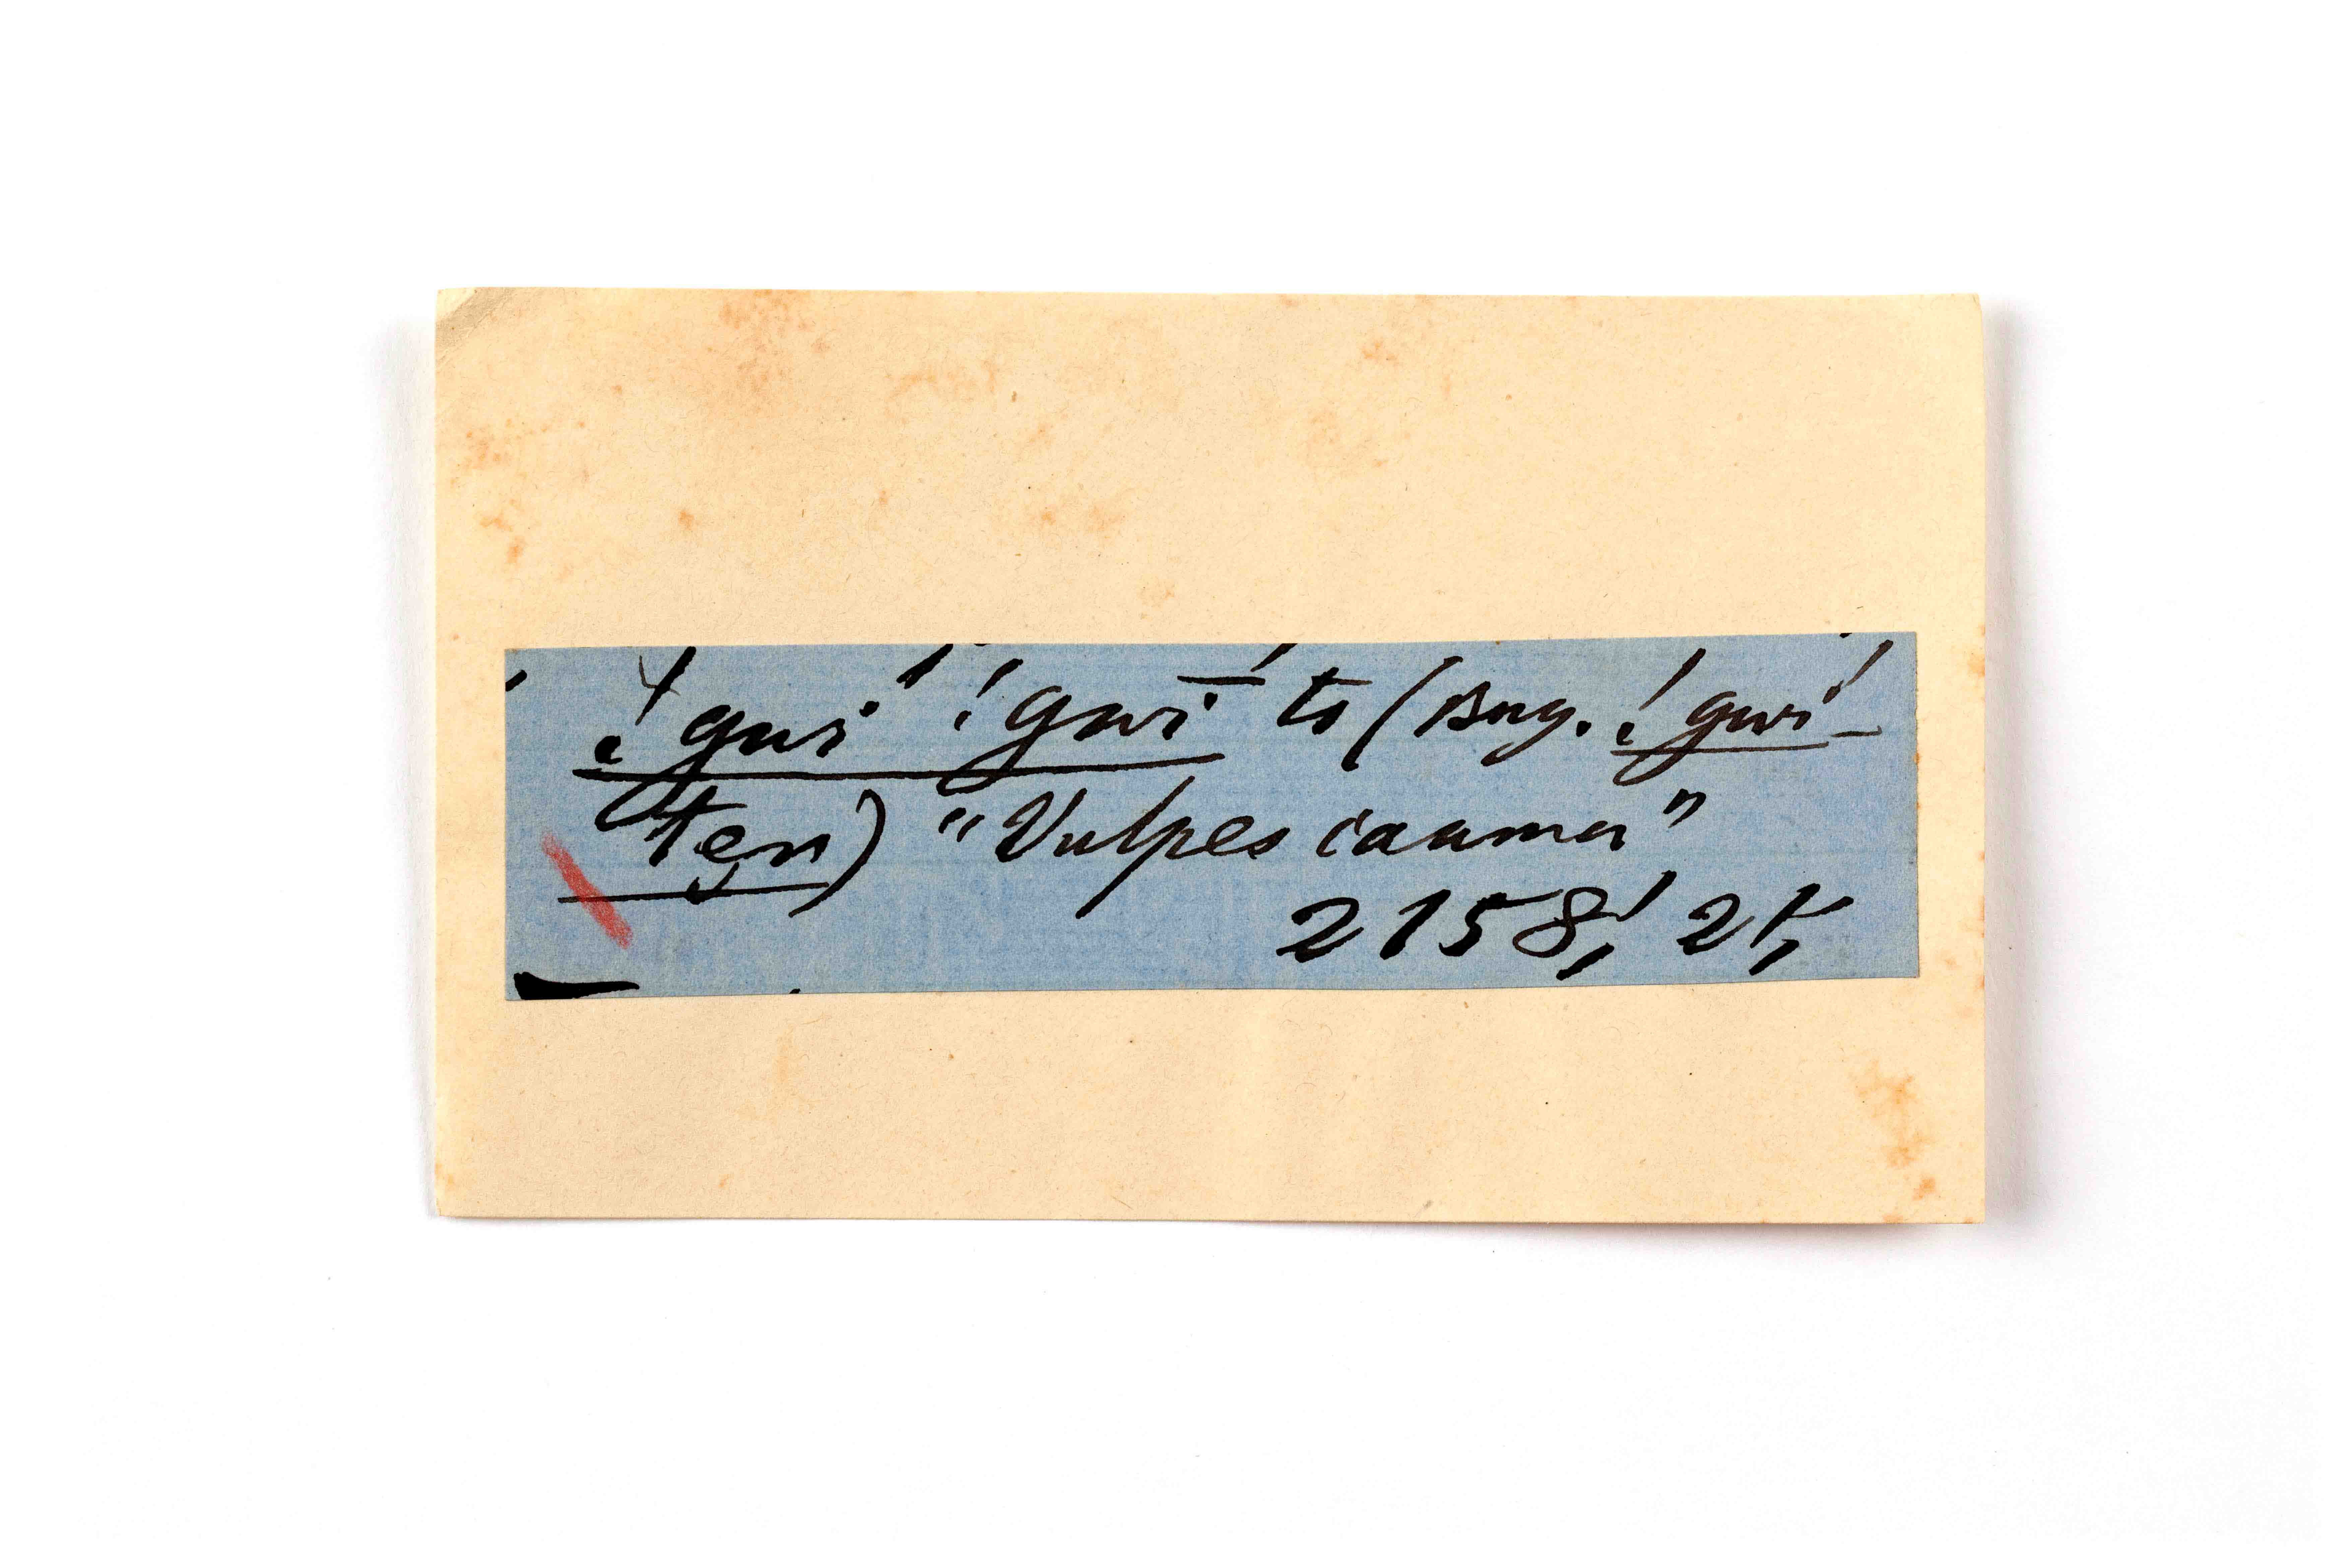 !gwi !gwī to (Bug. !gwi-
ten) "Vulpes caama"
2158,' 21,